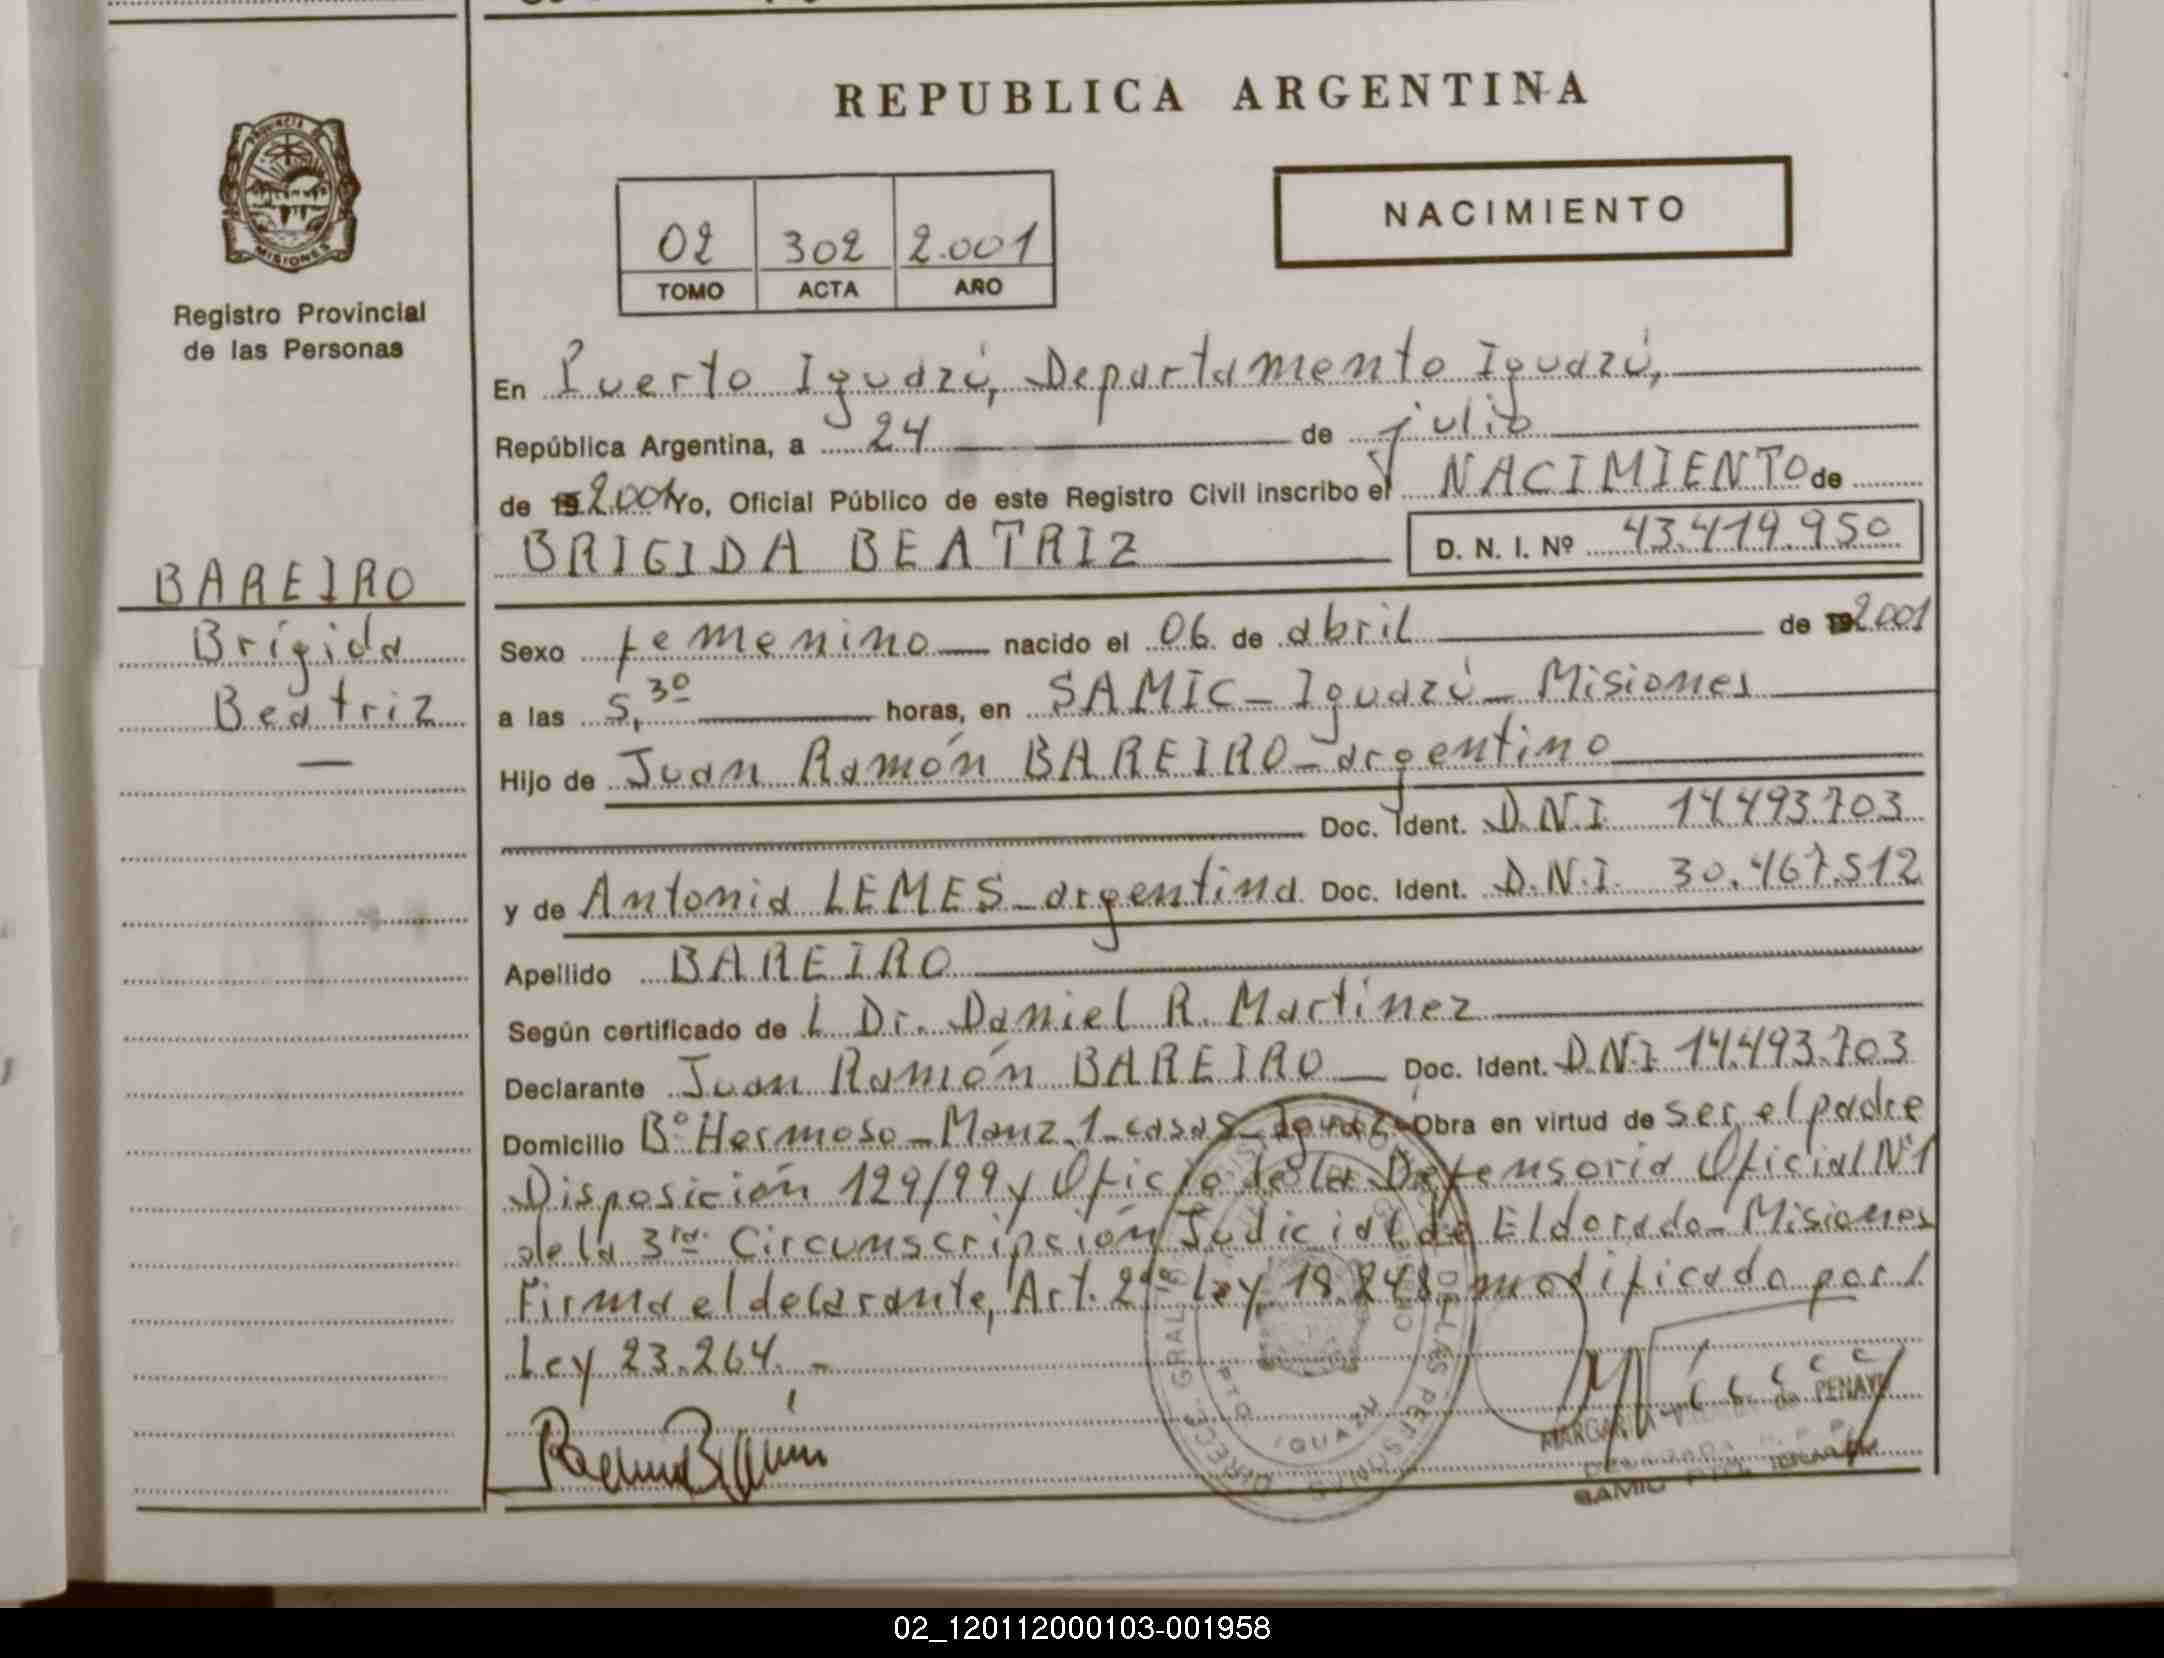 REPUBLICA ARGENTINA
PROVINCIA DE
MISIONES
Registro Provincial
de las Personas
02 302 2.001
TOMO ACTA AÑO
NACIMIENTO
En Puerto Iguazú, Departamento Iguazú,
República Argentina, a 24 de julio
de 19 2.001 Yo, Oficial Público de este Registro Civil inscribo el NACIMIENTO de
BRIGIDA BEATRIZ D. N. I. Nº 43.419.950
BAREIRO
Brígida
Beatriz
Sexo femenino nacido el 06 de abril de 19 2001
a las 5,30 horas, en SAMIC - Iguazú - Misiones
Hijo de Juan Ramón BAREIRO - argentino
Doc. Ident. D.N.I 14.493.703
y de Antonia LEMES - argentina Doc. Ident. D.N.I. 30.467.512
Apellido BAREIRO
Según certificado de l Dr. Daniel R. Martínez
Declarante Juan Ramón BAREIRO Doc. Ident. D.N.I 14.493.703
Domicilio Bº Hermoso - Manz. 1 - casa Obra en virtud de ser el padre
Disposición 129/99 y Oficio de la Defensoria Oficial Nº 1
de la 3ra. Circunscripción Judicial de Eldorado - Misiones
Firma el declarante, Art. Ley 18.248, modificado por l
Ley 23.264. -
DIRECC. GRAL. DE LAS PERSONAS
PTO. IGUAZU
MARGARITA de PENAYO
SAMIC PTO. IGUAZU
02_120112000103-001958